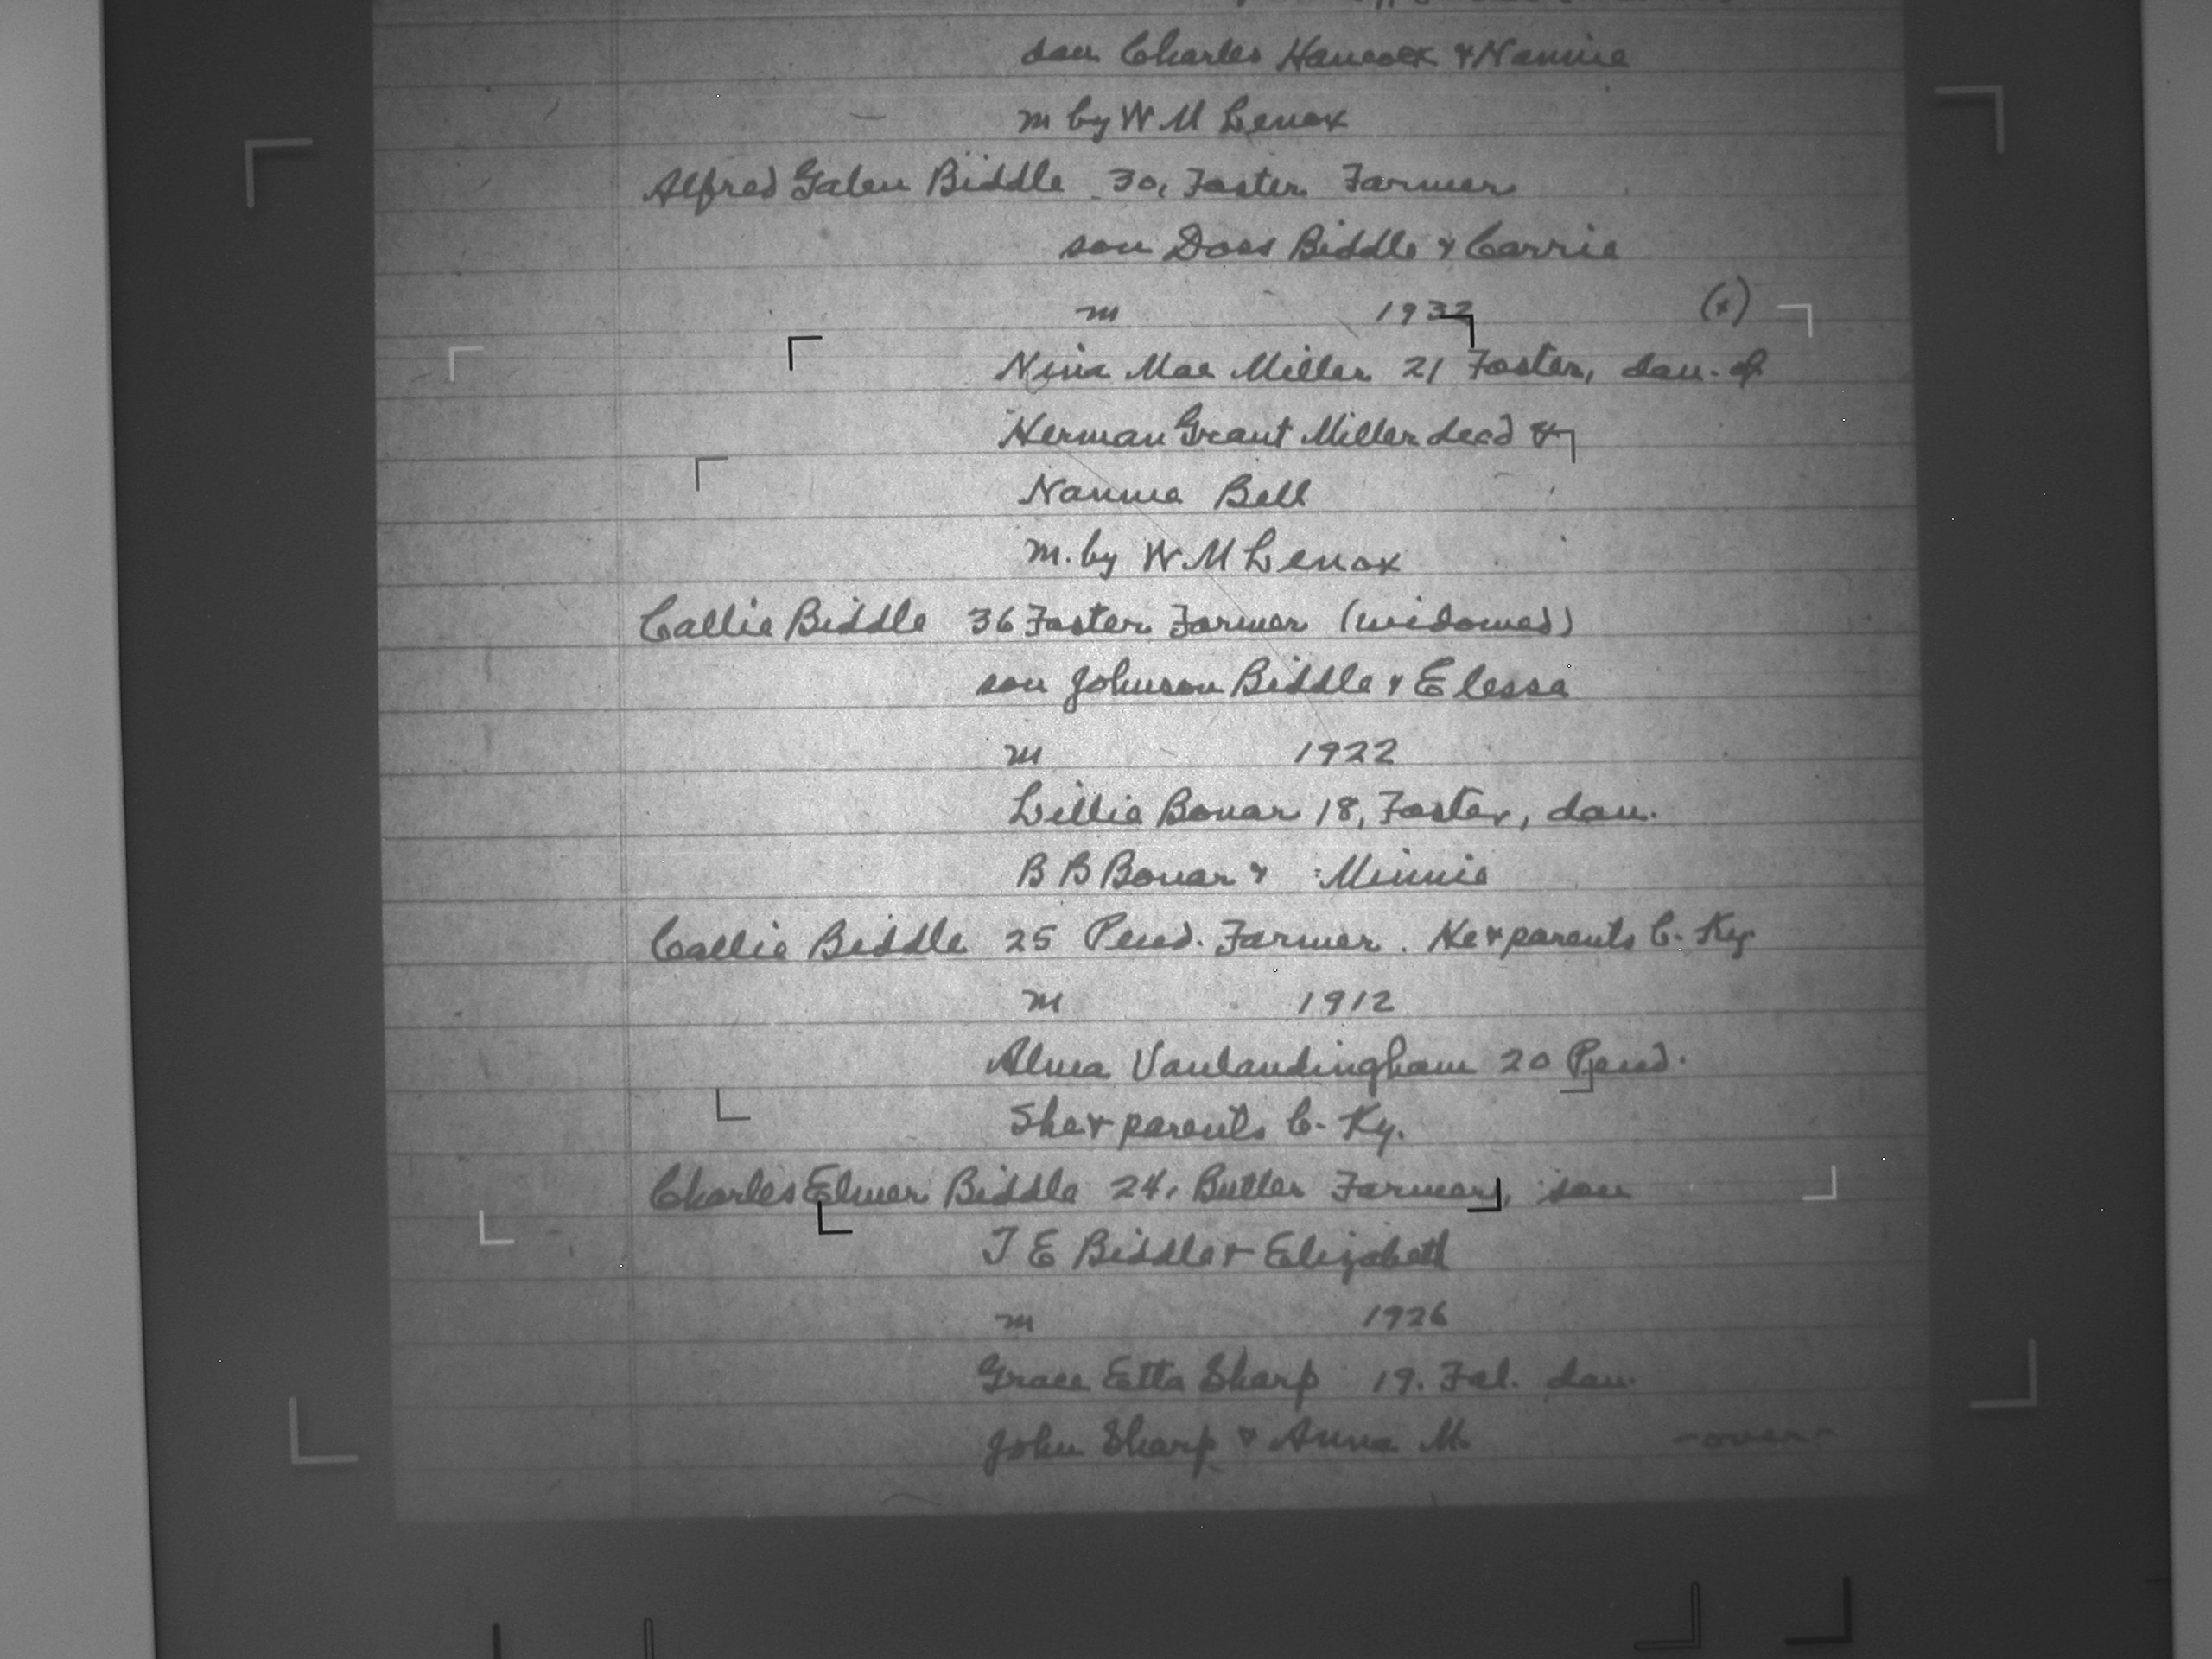 dau Charles Hancock & Nannie
m by W M Lenox
Alfred Galen Biddle 30, Foster Farmer
son Doas Biddle & Carrie
m 1932 (x)
Nina Mae Miller 21 Foster, dau. of
Herman Grant Miller dead &
Nannie Bell
m. by W M Lenox
Callie Biddle 36 Foster Farmer (widowed)
son Johnson Biddle & Elessa
m 1922
Lillie Bonar 18, Foster, dau.
B B Bonar & Minnie
Callie Biddle 25 Pend. Farmer. He & parents C. Ky
m 1912
Alma Vanlandingham 20 Pend.
She & parents C. Ky.
Charles Elmer Biddle 24, Butler Farmer, son
T E Biddle & Elizabeth
m 1926
Grace Etta Sharp 19. Fal. dau.
John Sharp & Anna M. -over-